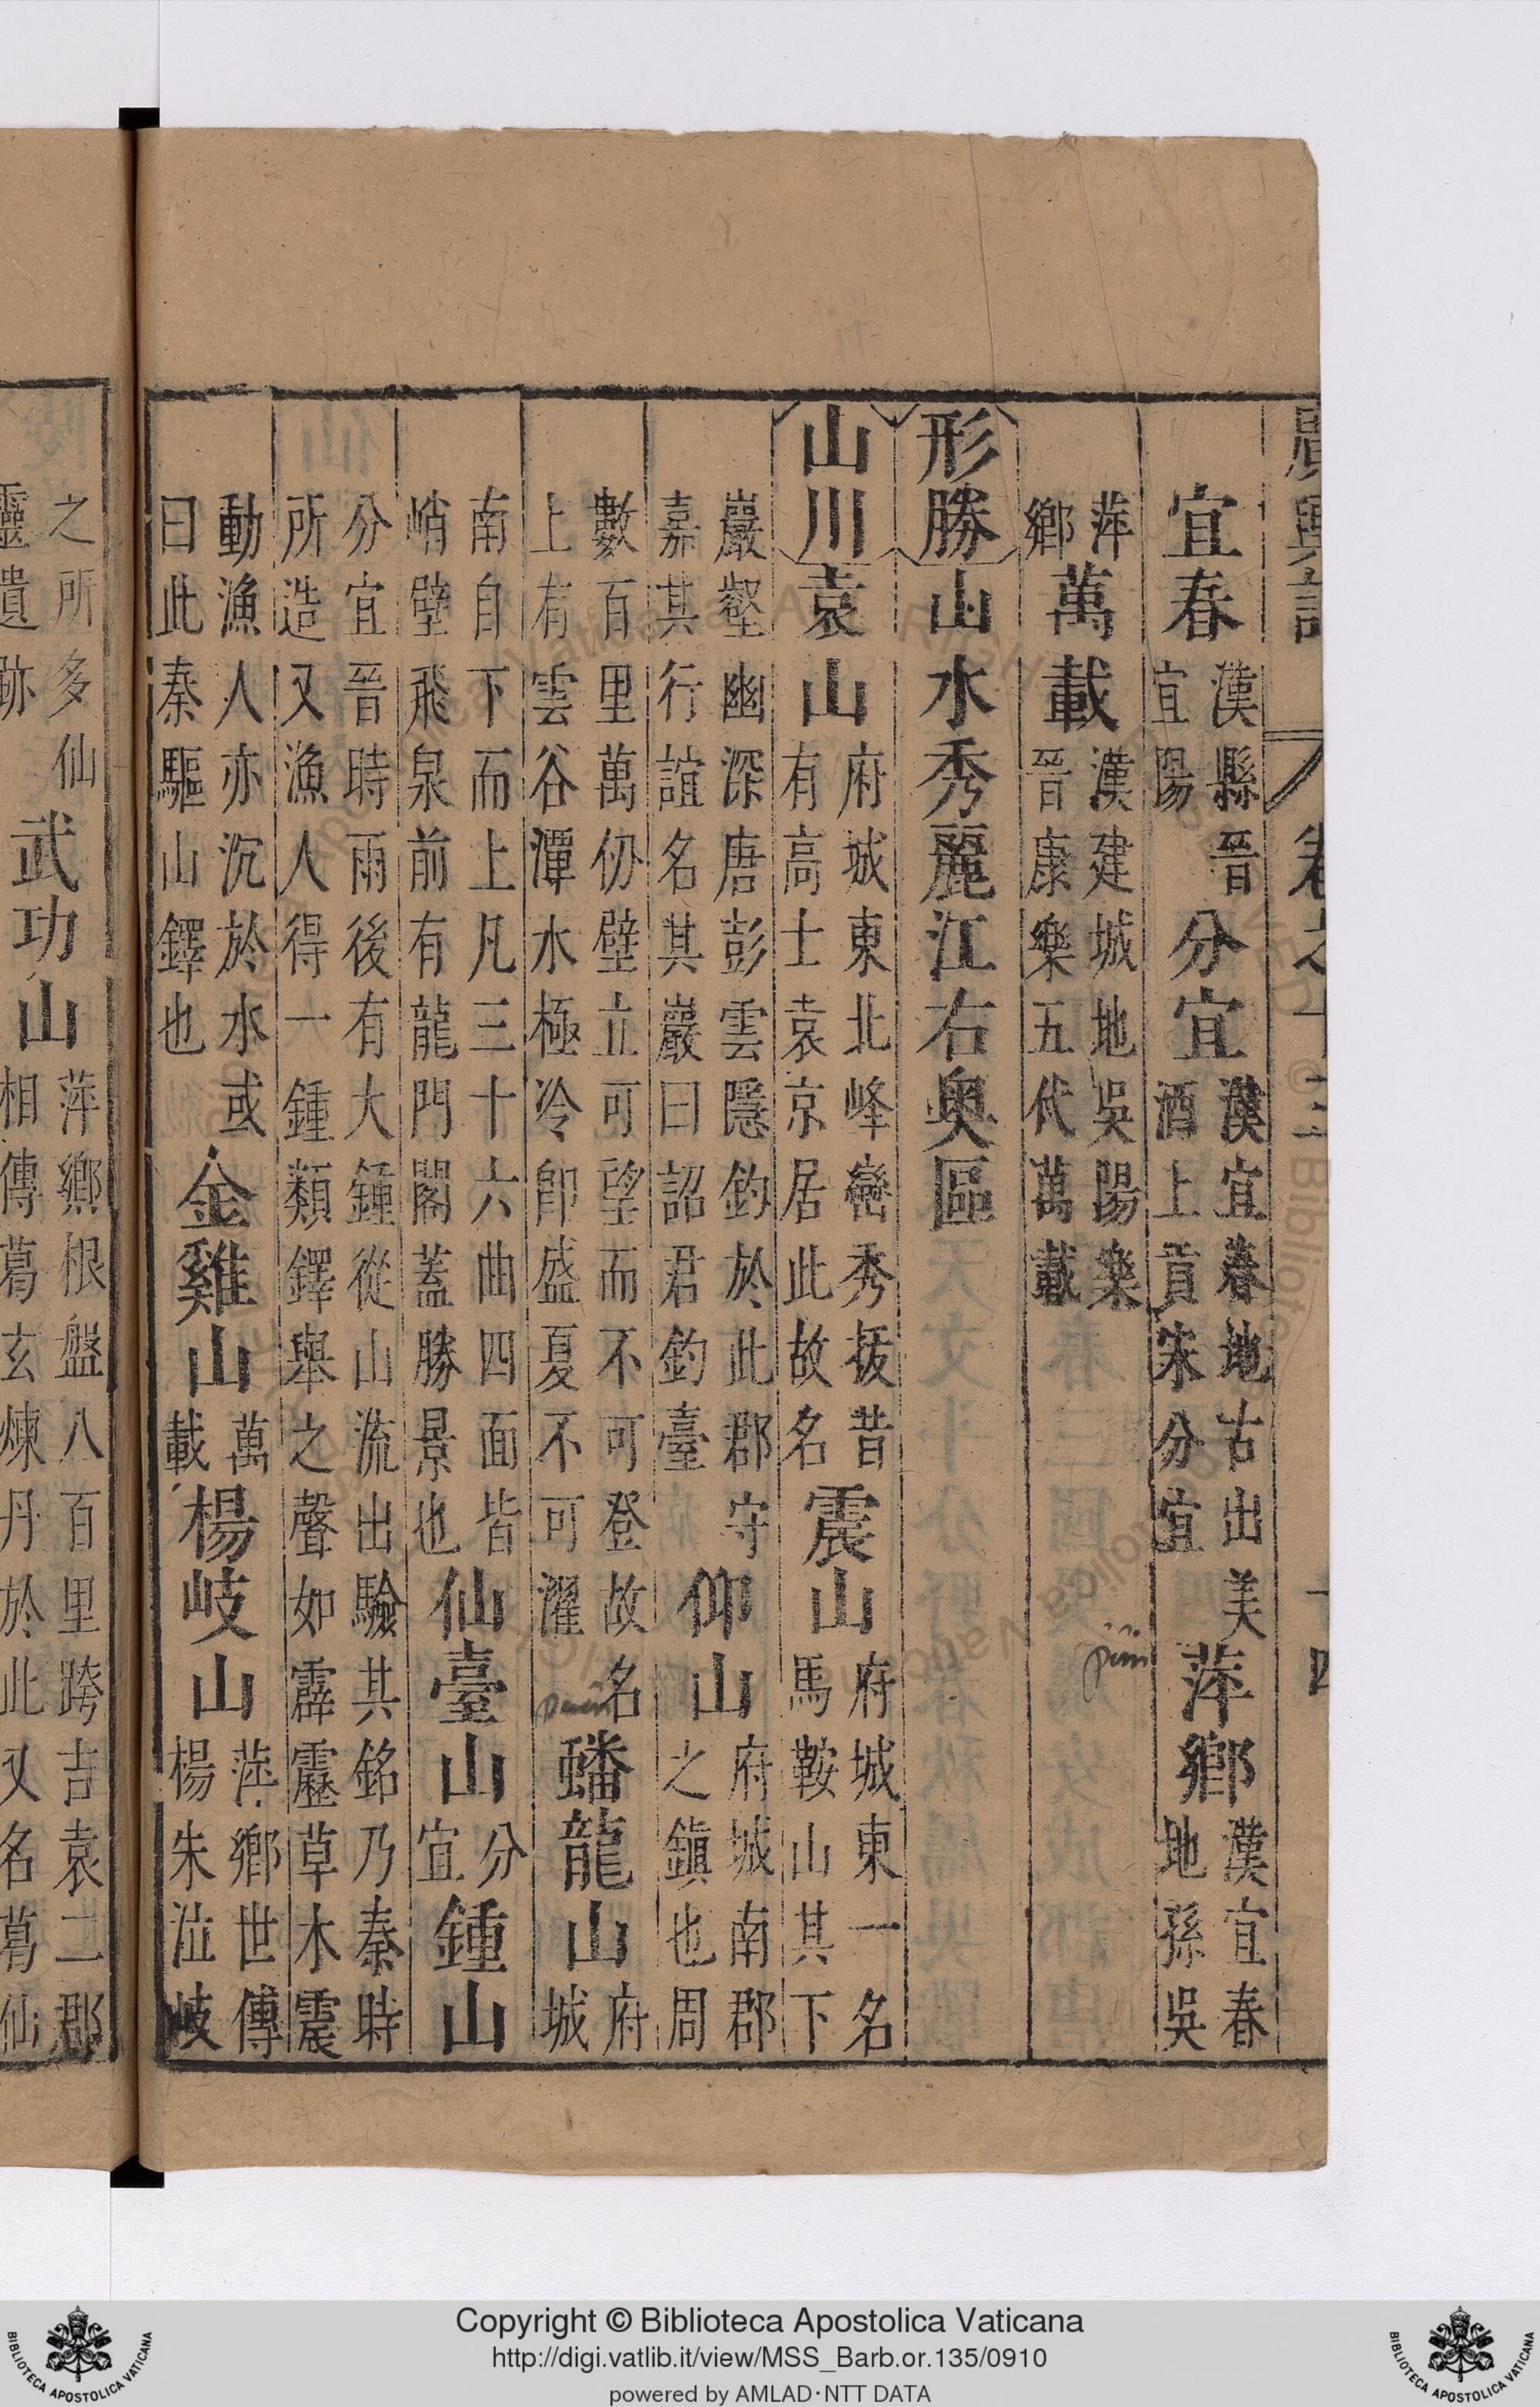 廣輿記 卷之十三 十四
宜春漢縣晉宜陽分宜漢宜春地古出美酒上貢宋分宜萍鄉漢宜春地孫吳
萍鄉萬載漢建城地吳陽樂晉康樂五代萬載
形勝山水秀麗江右奧區
山川袁山府城東北峰巒秀拔昔有高士袁京居此故名震山府城東一名馬鞍山其下
巖壑幽深唐彭雲隱釣於此郡守嘉其行誼名其巖曰詔君釣臺仰山府城南郡之鎮也周
數百里萬仞壁立可望而不可登故名上有雲谷潭水極冷卽盛夏不可濯蟠龍山府城
南自下而上凡三十六曲四面皆峭壁飛泉前有龍門閣蓋勝景也仙臺山分宜鍾山
分宜晉時雨後有大鍾從山流出驗其銘乃秦時所造又漁人得一鍾類鐸舉之聲如霹靂草木震
動漁人亦沉於水或曰此秦驅山鐸也金雞山萬載楊岐山萍鄉世傳楊朱泣岐
之所多仙靈遺跡武功山萍鄉根盤八百里跨吉袁二郡相傳葛玄煉丹於此又名葛仙
Copyright © Biblioteca Apostolica Vaticana
http://digi.vatlib.it/view/MSS_Barb.or.135/0910
powered by AMLAD·NTT DATA
BIBLIOTECA APOSTOLICA VATICANA
BIBLIOTECA APOSTOLICA VATICANA